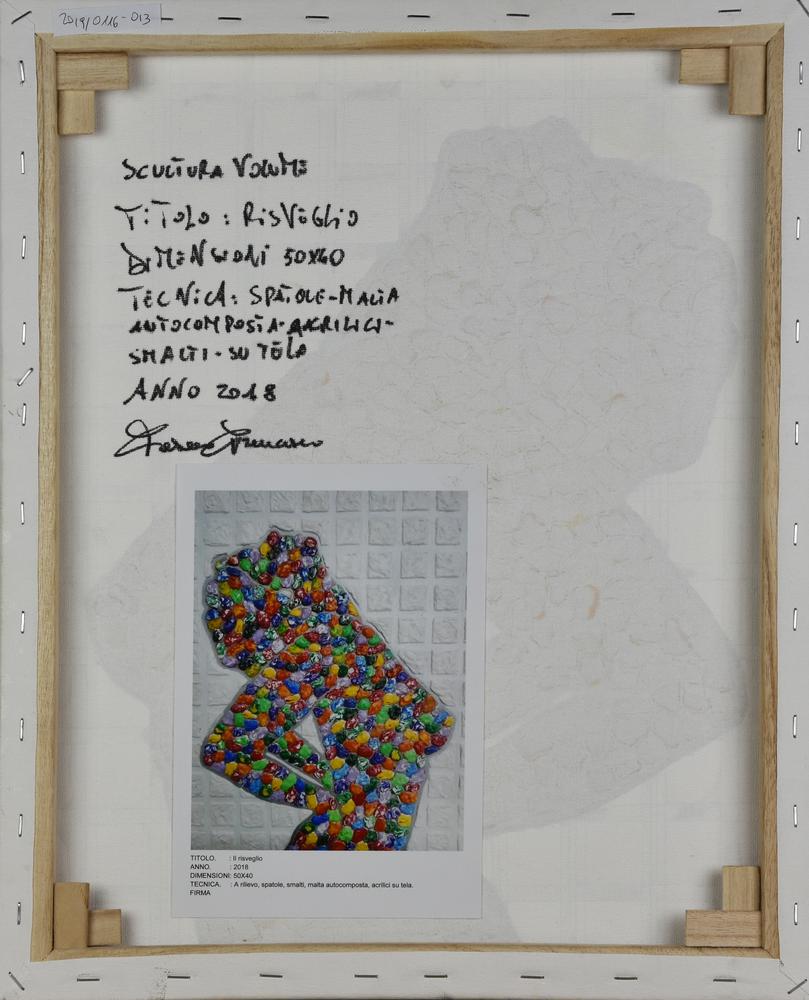 2019/0116-013
SCULTURA VOLUME
TITOLO : RISVEGLIO
DIMENSIONI 50X40
TECNICA: SPATOLE-MALTA
AUTOCOMPOSTA-ACRILICI-
SMALTI-SU TELA
ANNO 2018
TITOLO. : Il risveglio
ANNO. : 2018
DIMENSIONI: 50X40
TECNICA. : A rilievo, spatole, smalti, malta autocomposta, acrilici su tela.
FIRMA